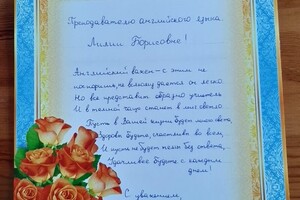 Преподавателю английского языка
Лилии Борисовне!
Английский важен – с этим не
поспоришь, не всякому даётся он легко
Но все представит образно учитель
И в темной чаще станет в миг светло
Пусть в Вашей жизни будет много света,
Здоровы будьте, счастливы во всем,
И пусть не будет тем без ответа,
Удачливее будьте с каждым
днем!
С уважением